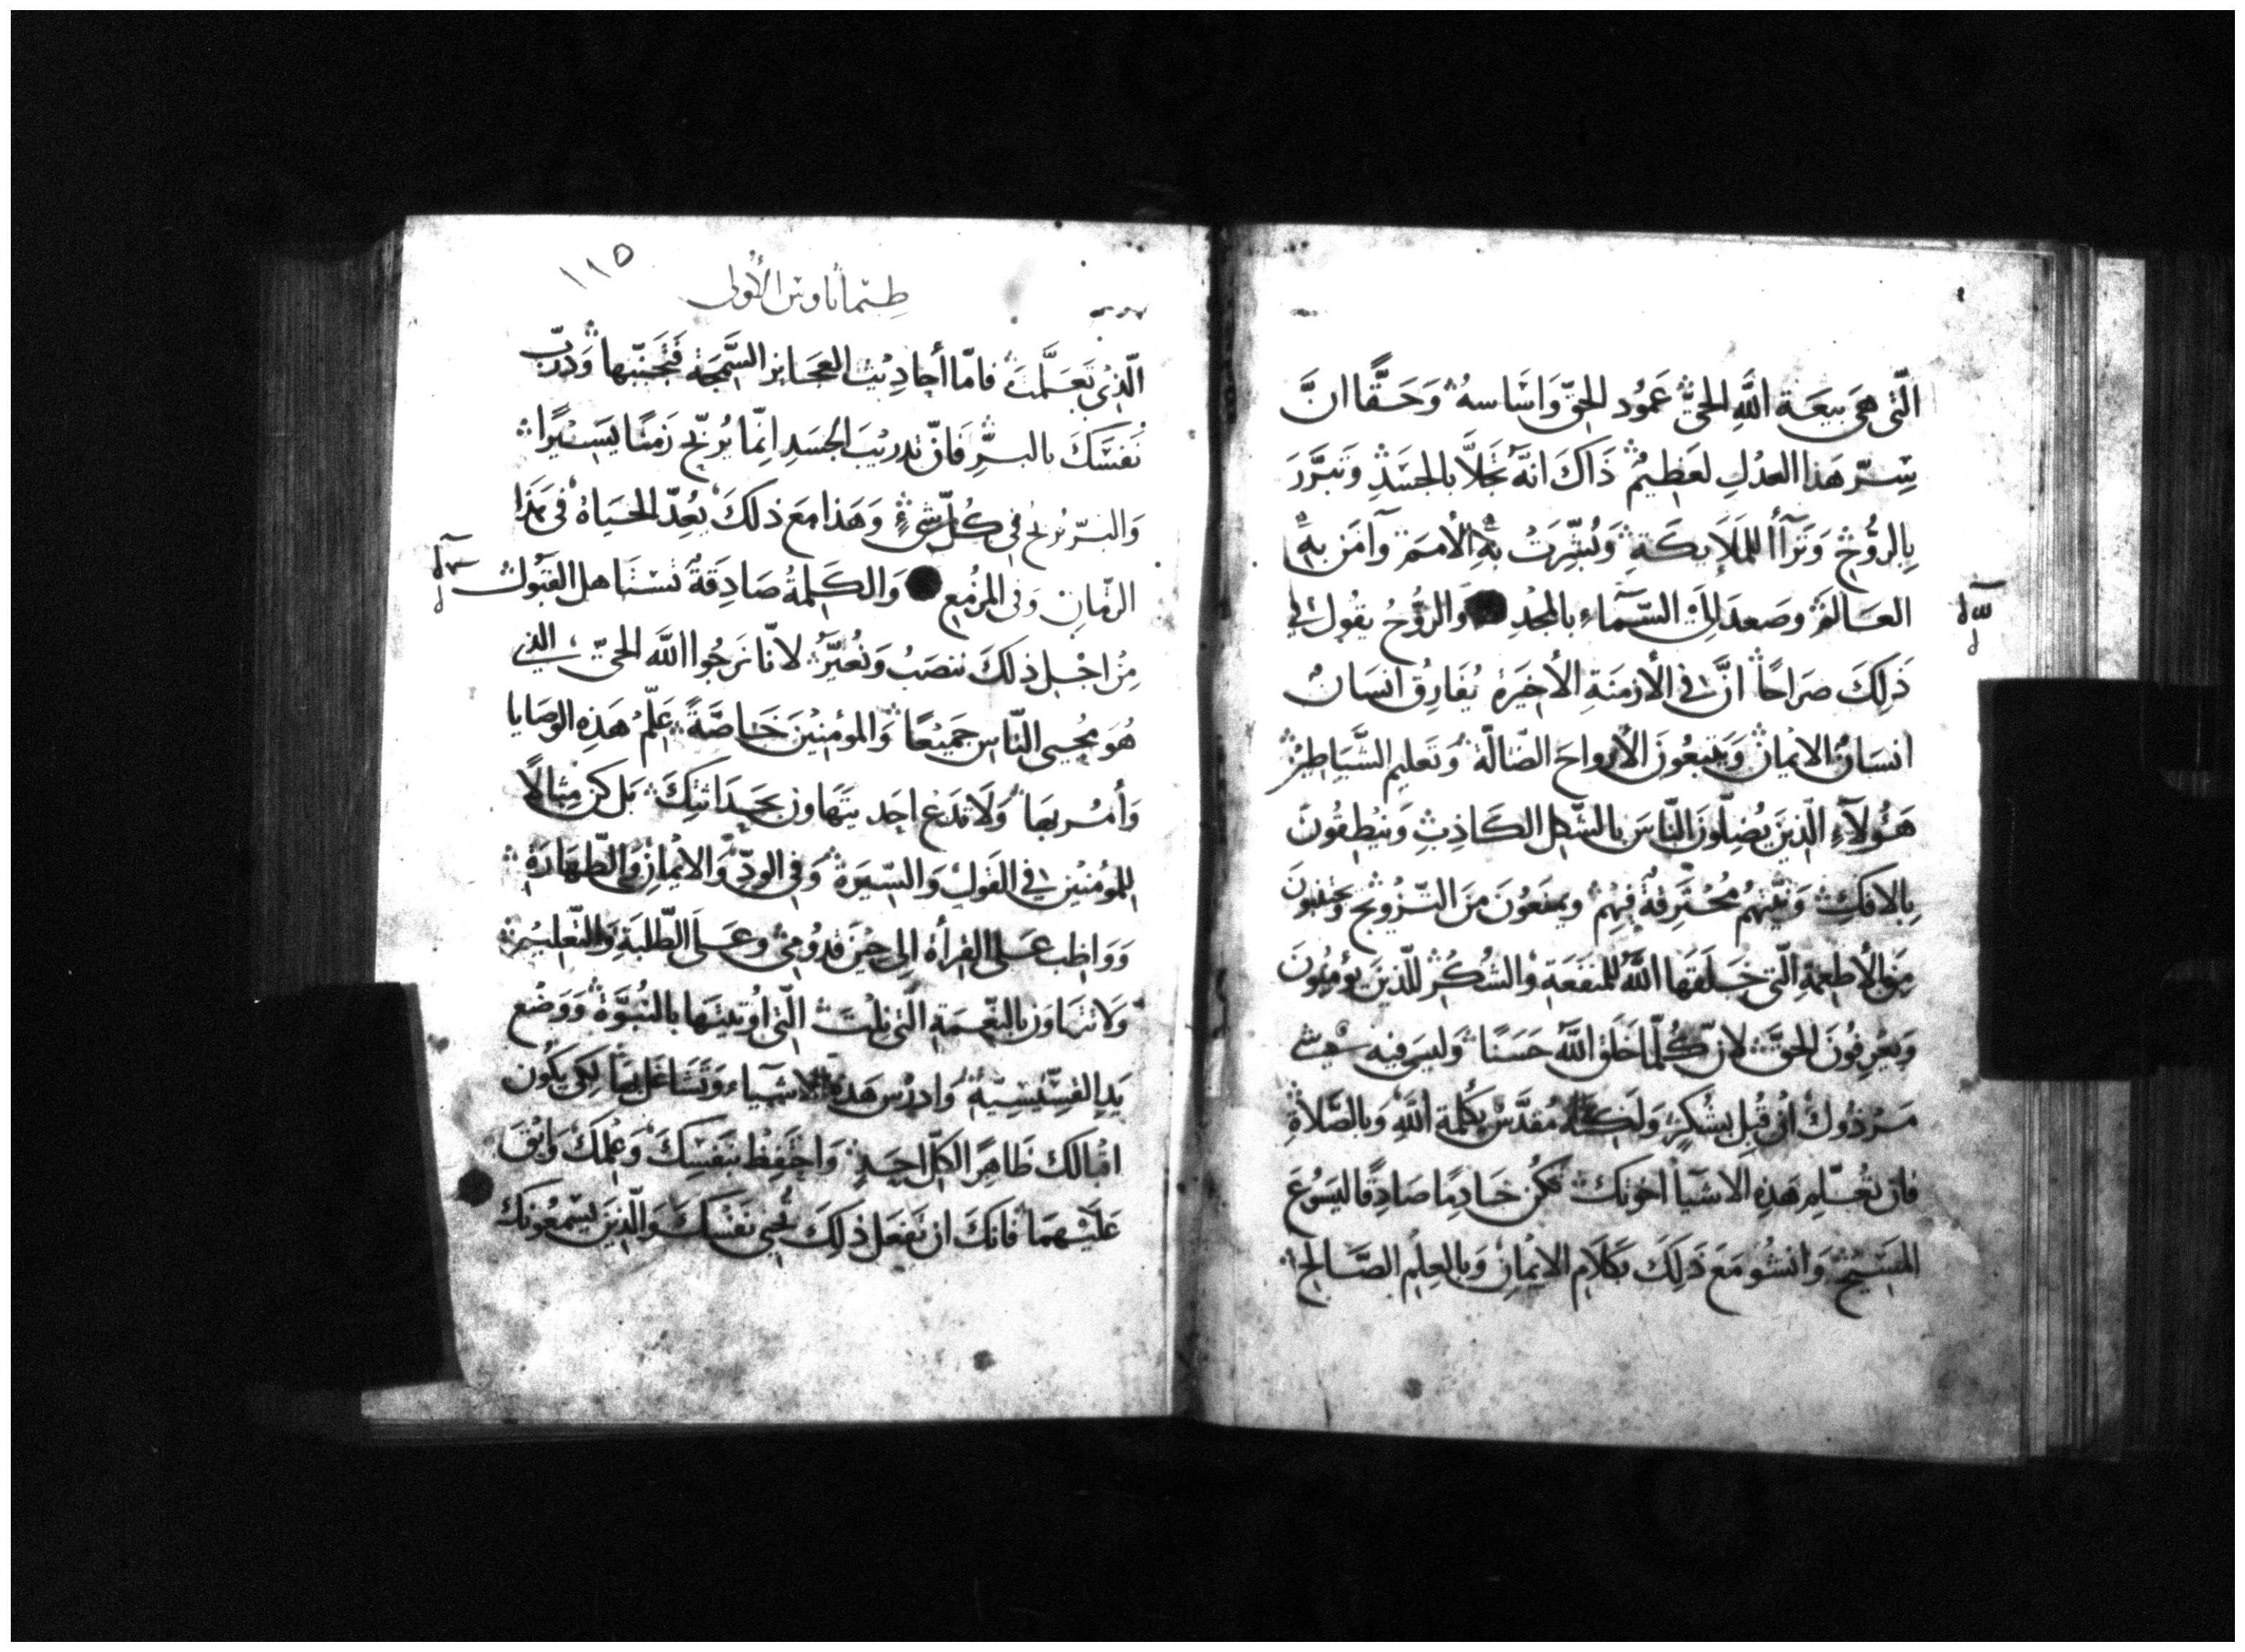 الّتى هىَ بيعَة اللَّهِ الحىِّ عَمُود الحقّ وَاسَاسهُ وَحَقًّا انَّ
سِرّ هَذا العدْلِ لعَظِيمٌ ذَاكَ انهُ تجَلاَّ بالجسَدِ وَتبرَّرَ
بِالرُّوْحِ وَترَآأ للمَلاَيكَةِ وَبُشِّرَتْ بهِ الأمَم وَآمَن بهِ
العَالمَ وصَعدَ الَى السَّمآء بالمجْدِ وَالرُّوْحُ يقُول في
ذَلِكَ صَرَاحًا انَّ في الأزمنَةِ الأخيرَة يُفَارِقُ انسَانٌ
انسَانٌ الايمانَ وَيتبعُونَ الأرواحَ الضّالّة وَتَعليم الشَّيَاطِينْ
هَؤلآءِ الّذينَ يُضِلّونَ النّاسَ بالشّكل الكَاذِبِ وَينْطقُونَ
بِالافكِ وَنيّتهُم مُحْترِقةٌ فِيْهِمْ ويمنَعُونَ مَن التّزْويْج وَيجتنبُونَ
مِن الأطعمَةِ الّتى خَلقهَا اللَّهُ للمنفَعَةِ وَالشُكُرْ للّذينَ يؤمِنُونَ
وَيعْرِفُونَ الحَقَّ لانّ كُلّمَا خَلَقَ اللَّهُ حَسَنًا وَليسَ فيه شىء
مَرذوُلْ انْ قُبِلَ بِشُكرٍ وَلَكنّهُ مُقدّسٌ بكَلمة اللَّهِ وَبالصَّلاةِ
فان تعُلّم هَذِهِ الاشيَآ اخوتكَ تكُن خَادِمًا صَادِقًا ليَسُوعَ
المسَيْحِ وَانشُو مَعَ ذَلِكَ بكَلَامِ الايمَانِ وَبالعِلْمِ الصَّالحِ
طيماثاوس الأولى
١١٥
الّذِى تَعَلَّمتَ فامّا أحادِيْث العجَايز السَّمجَة فَتجَنّبها وَدرّب
نَفسَكَ بالبرِّ فَانّ تدريبَ الجسَدِ انّما يُربّح زَمنًا يَسيْرًا
وَالبرّ يُربح في كُلّ شَىءٍ وَهَذا معَ ذلكَ يعُدّ الحيَاة في هَذا
الزّمانِ وَفى المزمَع وَالكَلمةُ صَادِقةٌ تستَاهل القبُول
مِنْ اجْل ذلكَ ننصَبُ وَنُعيَّرُ لانّا نرجُوا اللَّه الحىّ الذي
هُوَ محيى النّاس جَميْعًا وَالمؤمنيْنَ خَاصَّةً عَلّم هَذِه الوصَايا
وَأمُر بهَا وَلَا تدَع احَد يتَهاون بحَدَاثتِكَ بَل كن مِثالاً
للمؤمنين في القَولِ وَالسّيرَة وَفي الودِّ وَالايمانِ وَالطّهَارَةِ
وَوَاظِب عَلى القرأة الي حيْنَ قدُومِي وعَلَى الطّلبَةِ وَالتّعليْم
وَلا تتهَاون بالنّعمَةِ الّتى نلْتَ الّتى اوُتيتهَا بالنُبُوَّة وَوَضْع
يَدِ القسّيسيّة وَادرُس هَذهِ الاشيآء وَتشَاغَل بهَا لكَي يَكُون
اقبالك ظاهِرًا لكلّ احَدٍ وَاحَفِظْ بنَفسِكَ وَعِلمكَ وَابقَ
عَلَيْهمَا فانكَ ان تفعَل ذَلكَ تُحيي نفسَكَ وَالّذينَ يسْمعُونكَ